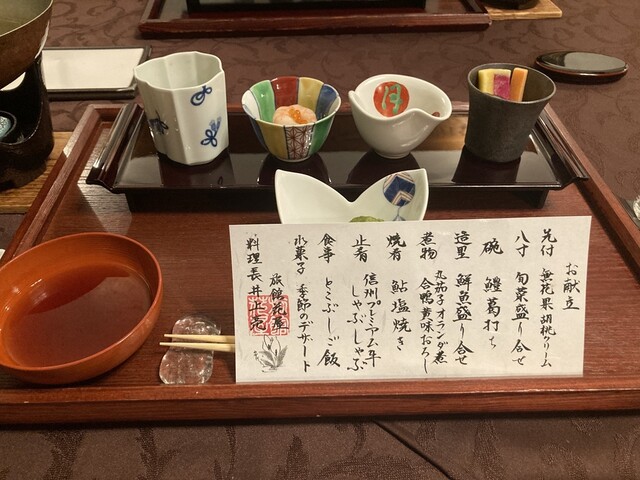 お献立
先付 無花果胡桃クリーム
八寸 旬菜盛り合せ
椀 鱧葛打ち
造里 鮮魚盛り合せ
煮物 丸茄子オランダ煮
合鴨黄味おろし
焼肴 鮎塩焼き
止肴 信州プレミアム牛
しゃぶしゃぶ
食事 とこぶしご飯
水菓子 季節のデザート
旅館花屋
料理長井